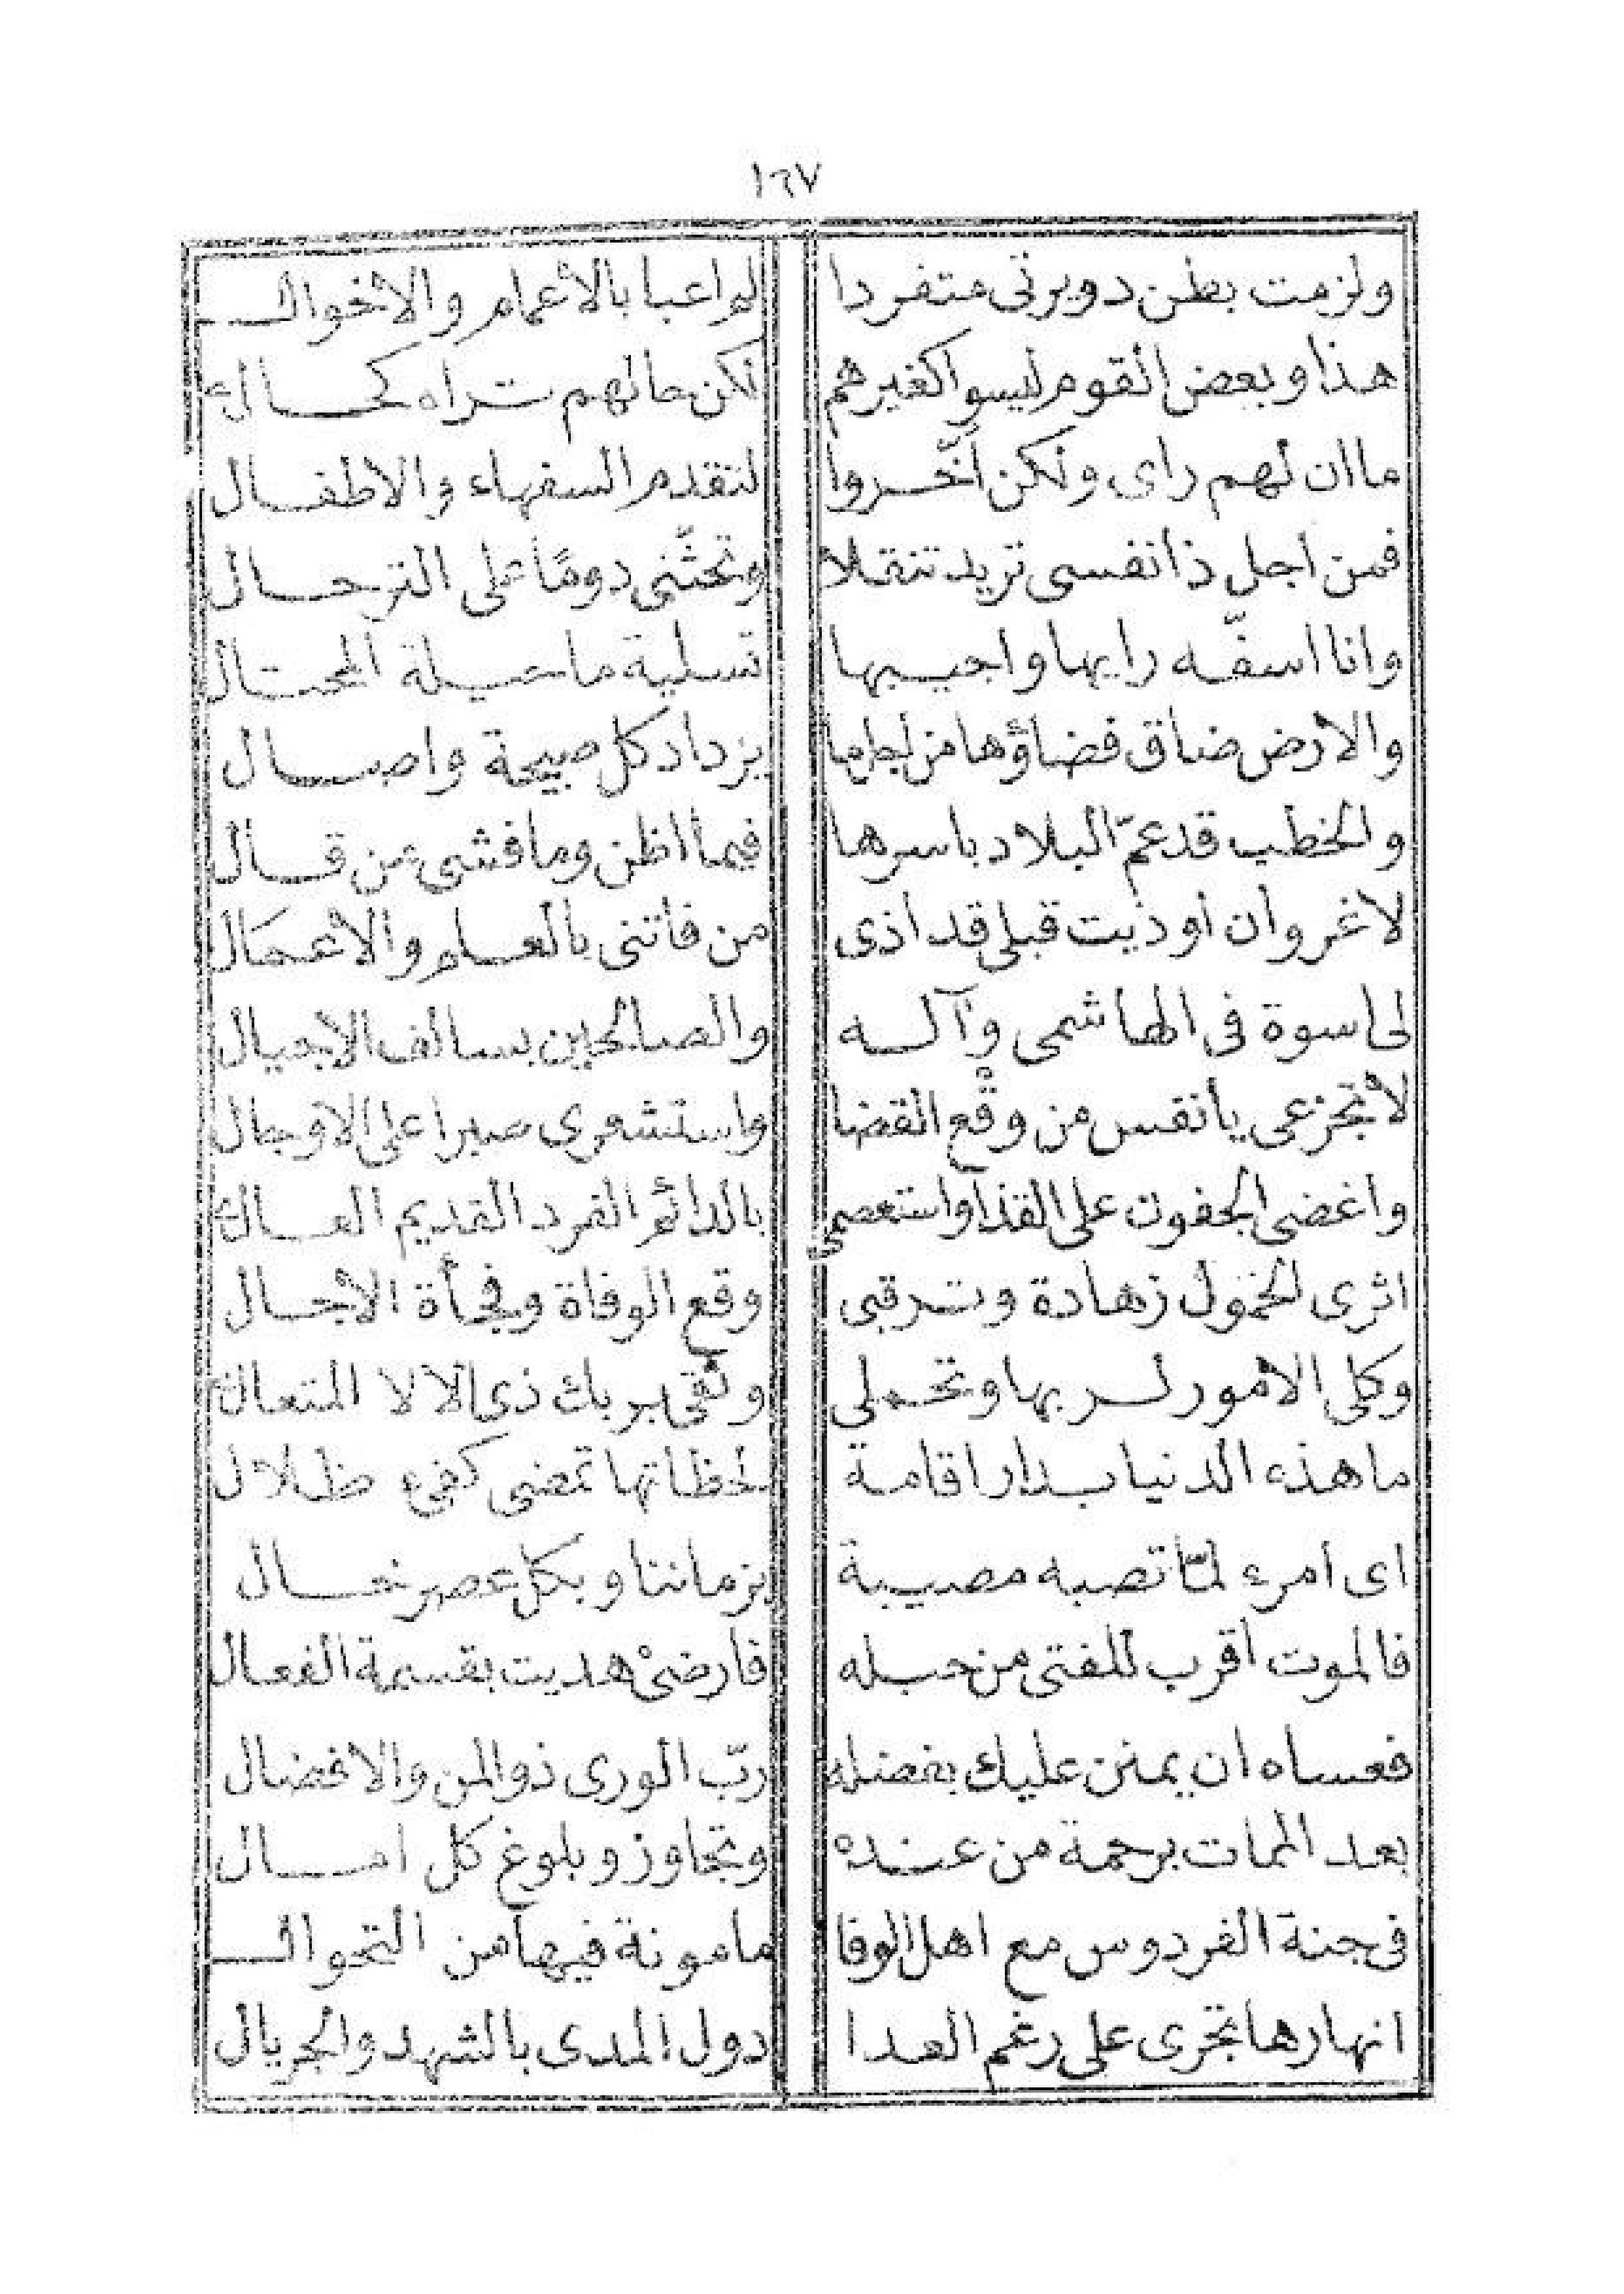 ١٦٧
ولزمت بطن دويرتى متفردا لم اعبا بالأعمام والأخوال
هذا وبعض القوم ليسوا كغيرهم لكن حالهم تراه كحالى
ما ان لهم راى ولكن اخّروا لتقدم السفهاء والاطفال
فمن اجل ذا نفسى تريد تنقلا وتحثّنى دومًا على الترحال
وانا اسفّه رايها واجيبها تسلية ما حيلة المحتال
والارض ضاق فضاؤها من لجامها يزداد كل صبيحة واصال
والخطب قد عمّ البلاد باسرها فيما اظن وما فشى عن قال
لا غرو ان اوذيت قبلى قد أذى من فاتنى بالعلم والأعمال
لى اسوة فى الهاشمى وآله والصالحين بسالف الاجيال
لا تجزعى يا نفس من وقْع القضا واستشعرى صبرا على الاوجال
واغضى الجفون على القذا واستعصمى بالدائم الفرد القديم العالى
اثرى الخمول زهادة وترقبى وقع الوفاة وفجأة الأجال
وكلى الامور لربها وتحملى وثقى بربك ذى الالا المتعال
ما هذه الدنيا بدار اقامة لحظاتها تمضى كفىء ظلال
اى امرء لمّا تصبه مصيبة بزماننا وبكل عصر خال
فالموت اقرب للفتى من حبله فارضىْ هديت بقسمة الفعال
فعساه ان يمنن عليك بفضله ربّ الورى ذو المن والافضال
بعد الممات برحمة من عنده وتجاوز وبلوغ كل امال
فى جنة الفردوس مع اهل الوفا مامونة فيها من التحوال
انهارها تجرى على رغم العدا دول المدى بالشهد والجريال